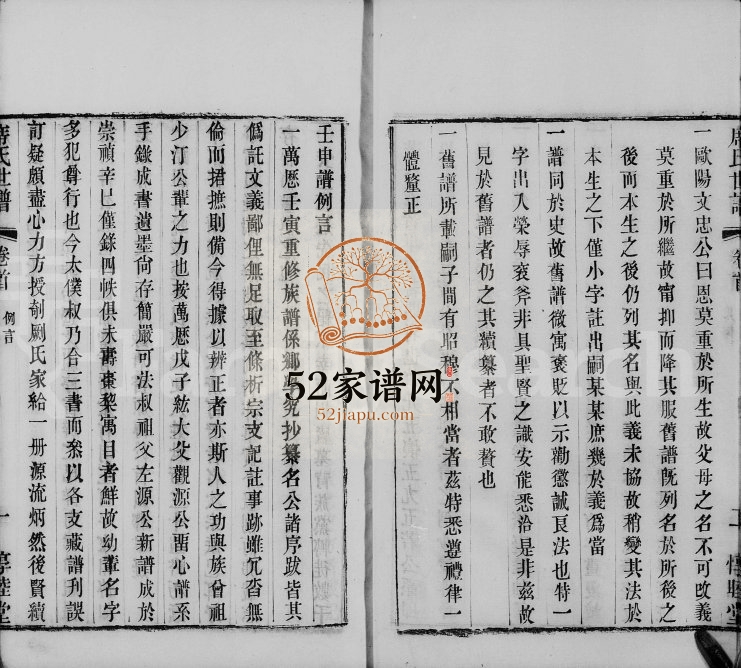 一歐陽文忠公曰恩莫重於所生故父母之名不可改義
莫重於所繼故甯抑而降其服舊譜旣列名於所後之
後而本生之後仍列其名與此義未協故稍變其法於
本生之下僅小字註出嗣某某庶幾於義爲當
一譜同於史故舊譜微寓褒貶以示勸懲誠良法也特一
字出入榮辱衮斧非具聖賢之識安能悉洽是非兹故
見於舊譜者仍之其續纂者不敢贅也
一舊譜所載嗣子間有昭穆不相當者兹特悉遵禮律一
體釐正
席氏世譜
卷首
二
惇睦堂
壬申譜例言
一萬厯壬寅重修族譜係鄉 究抄纂名公諸序跋皆其
僞託文義鄙俚無足取至條析宗支記註事跡雖冗沓無
倫而捃摭則備今得據以辨正者亦斯人之功與族曾祖
少汀公輩之力也按萬厯戊子紘大父觀源公畱心譜系
手錄成書遺墨尙存簡嚴可法叔祖父左源公新譜成於
崇禎辛巳僅錄四帙俱未壽棗棃寓目者鮮故幼輩名字
多犯尊行也今太僕叔乃合三書而叅以各支藏譜刋誤
訂疑頗盡心力方授剞劂氏家給一册源流炳然後賢續
席氏世譜
卷首
例言
一
惇睦堂
52家谱网
52jiapu.com